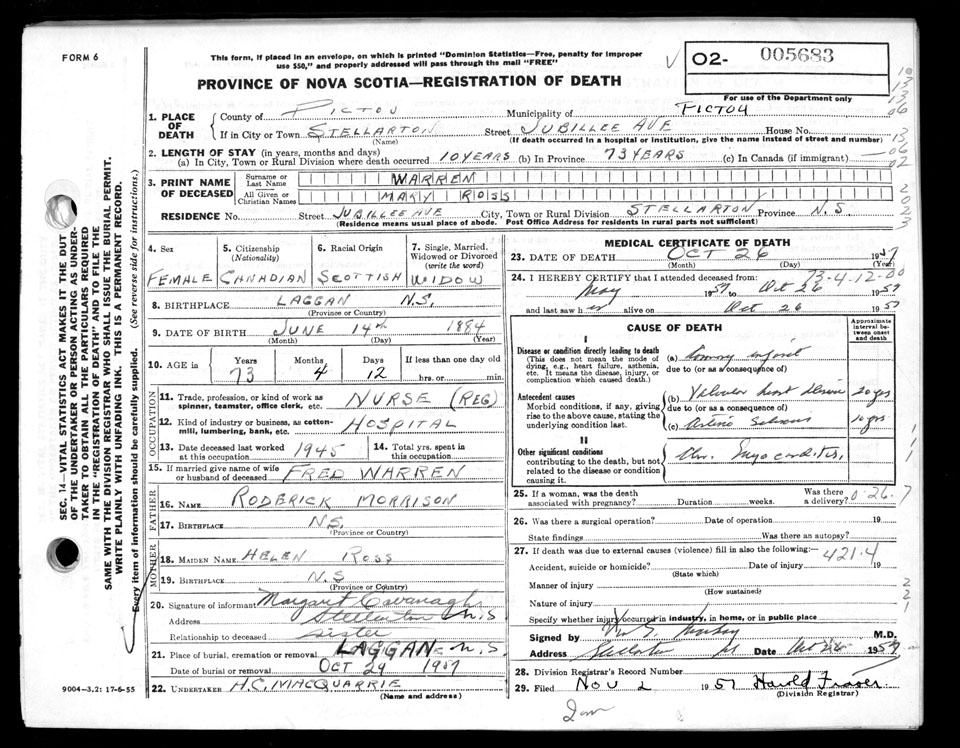 FORM 6
This form, if placed in an envelope, on which is printed "Dominion Statistics—Free, penalty for improper
use $50," and properly addressed will pass through the mail "FREE"
PROVINCE OF NOVA SCOTIA—REGISTRATION OF DEATH
02- 005683
For use of the Department only
1. PLACE OF DEATH
County of PICTOU Municipality of PICTOU
If in City or Town STELLARTON Street JUBILLEE AVE House No.
(Name) (If death occurred in a hospital or institution, give the name instead of street and number)
2. LENGTH OF STAY (in years, months and days)
(a) In City, Town or Rural Division where death occurred 10 YEARS (b) In Province 73 YEARS (c) In Canada (if immigrant)
3. PRINT NAME OF DECEASED
Surname or Last Name WARREN
All Given or Christian Names MARY ROSS
RESIDENCE No. Street JUBILLEE AVE City, Town or Rural Division STELLARTON Province N.S.
(Residence means usual place of abode. Post Office Address for residents in rural parts not sufficient)
4. Sex
FEMALE
5. Citizenship (Nationality)
CANADIAN
6. Racial Origin
SCOTTISH
7. Single, Married, Widowed or Divorced (write the word)
WIDOW
8. BIRTHPLACE LAGGAN N.S.
(Province or Country)
9. DATE OF BIRTH JUNE 14th 1884
(Month) (Day) (Year)
10. AGE in
Years Months Days If less than one day old
73 4 12 hrs. or min.
OCCUPATION
11. Trade, profession, or kind of work as spinner, teamster, office clerk, etc. NURSE (REG)
12. Kind of industry or business, as cotton-mill, lumbering, bank, etc. HOSPITAL
13. Date deceased last worked at this occupation 1945
14. Total yrs. spent in this occupation
15. If married give name of wife or husband of deceased FRED WARREN
FATHER
16. NAME RODERICK MORRISON
17. BIRTHPLACE N.S.
(Province or Country)
MOTHER
18. MAIDEN NAME HELEN ROSS
19. BIRTHPLACE N.S
(Province or Country)
20. Signature of informant Margaret Cavanagh
Address Stellarton N.S
Relationship to deceased sister
21. Place of burial, cremation or removal LAGGAN N.S.
Date of burial or removal OCT 29 1957
22. UNDERTAKER H.C. MACQUARRIE
(Name and address)
9004—3.2: 17-6-55
MEDICAL CERTIFICATE OF DEATH
23. DATE OF DEATH OCT 26 1957
(Month) (Day) (Year)
73-4-12-00
24. I HEREBY CERTIFY that I attended deceased from:
May 1957 to Oct 26 1957
and last saw h alive on Oct 26 1957
CAUSE OF DEATH
Approximate interval between onset and death
I
Disease or condition directly leading to death
(This does not mean the mode of dying, e.g., heart failure, asthenia, etc. It means the disease, injury, or complication which caused death.)
(a)
due to (or as a consequence of)
Antecedent causes
Morbid conditions, if any, giving rise to the above cause, stating the underlying condition last.
(b) heart 20 yrs
due to (or as a consequence of)
(c) 10 yrs
II
Other significant conditions
contributing to the death, but not related to the disease or condition causing it.
Chr. Myocarditis,
25. If a woman, was the death associated with pregnancy? Duration weeks. Was there a delivery? 0-26-7
26. Was there a surgical operation? Date of operation 19
State findings Was there an autopsy?
27. If death was due to external causes (violence) fill in also the following:— 421.4
Accident, suicide or homicide? Date of injury 19
(State which)
Manner of injury
(How sustained)
Nature of injury
Specify whether injury occurred in industry, in home, or in public place
Signed by M.D.
Address Stellarton Date 1957
28. Division Registrar's Record Number
29. Filed Nov 2 1957 Harold Fraser
(Division Registrar)
SEC. 14—VITAL STATISTICS ACT MAKES IT THE DUTY
OF THE UNDERTAKER OR PERSON ACTING AS UNDER-
TAKER TO OBTAIN ALL THE PARTICULARS REQUIRED
IN THE "REGISTRATION OF DEATH" AND TO FILE THE
SAME WITH THE DIVISION REGISTRAR WHO SHALL ISSUE THE BURIAL PERMIT.
WRITE PLAINLY WITH UNFADING INK. THIS IS A PERMANENT RECORD.
Every item of information should be carefully supplied. (See reverse side for instructions.)